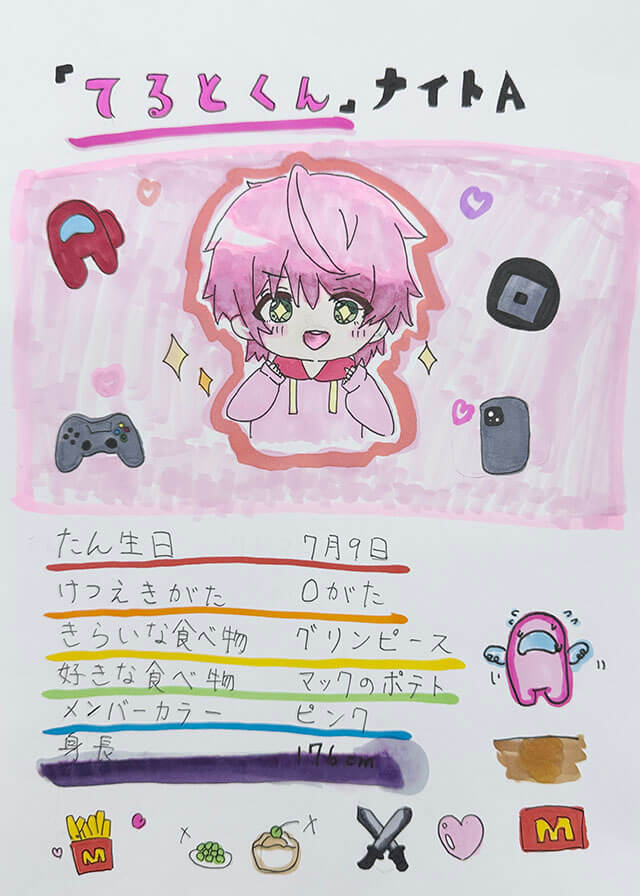 『てるとくん』ナイトA
たん生日 7月9日
けつえきがた Oがた
きらいな食べ物 グリンピース
好きな食べ物 マックのポテト
メンバーカラー ピンク
身長 176cm
M
M